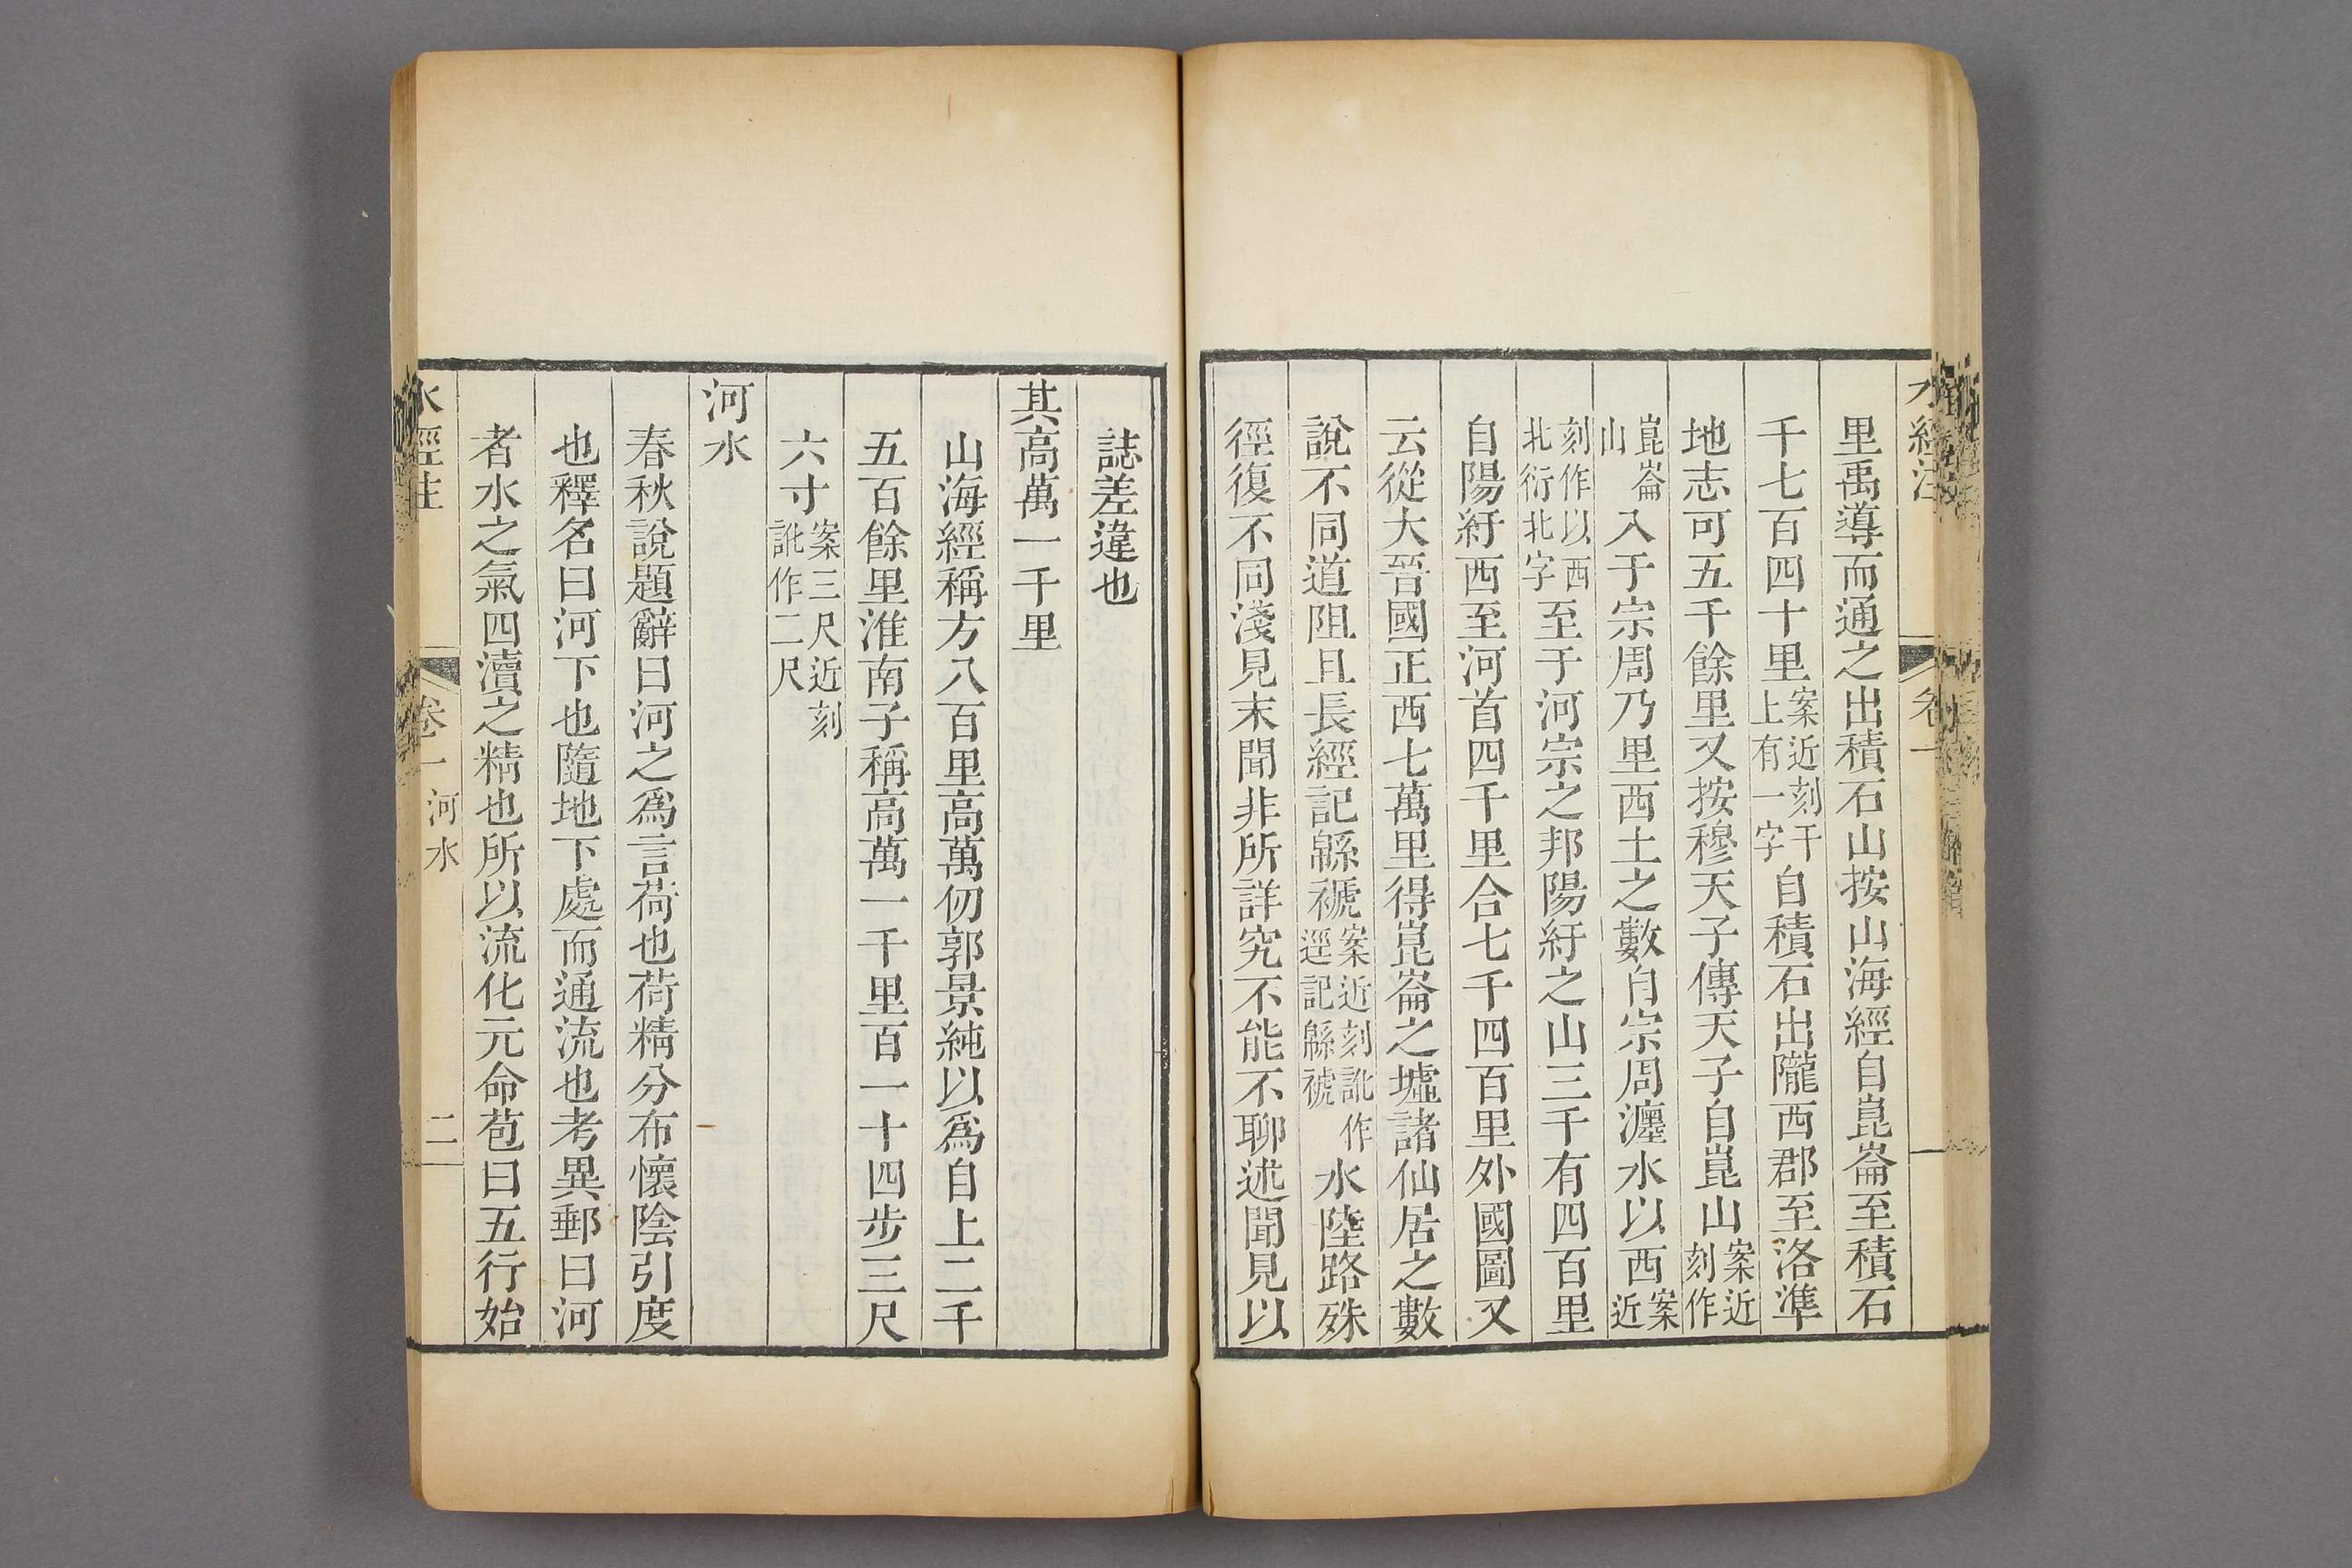 水經注
卷一
里禹導而通之出積石山按山海經自崑崙至積石
千七百四十里案近刻千上有一字自積石出隴西郡至洛準
地志可五千餘里又按穆天子傳天子自崑山案近刻作
崑崙山入于宗周乃里西土之數自宗周瀍水以西案近
刻作以西北衍北字至于河宗之邦陽紆之山三千有四百里
自陽紆西至河首四千里合七千四百里外國圖又
云從大晉國正西七萬里得崑崙之墟諸仙居之數
說不同道阻且長經記緜褫案近刻訛作逕記緜褫水陸路殊
徑復不同淺見末聞非所詳究不能不聊述聞見以
誌差違也
其高萬一千里
山海經稱方八百里高萬仞郭景純以爲自上二千
五百餘里淮南子稱高萬一千里百一十四步三尺
六寸案三尺近刻訛作二尺
河水
春秋說題辭曰河之爲言荷也荷精分布懷陰引度
也釋名曰河下也隨地下處而通流也考異郵曰河
者水之氣四瀆之精也所以流化元命苞曰五行始
水經注
卷一 河水
二